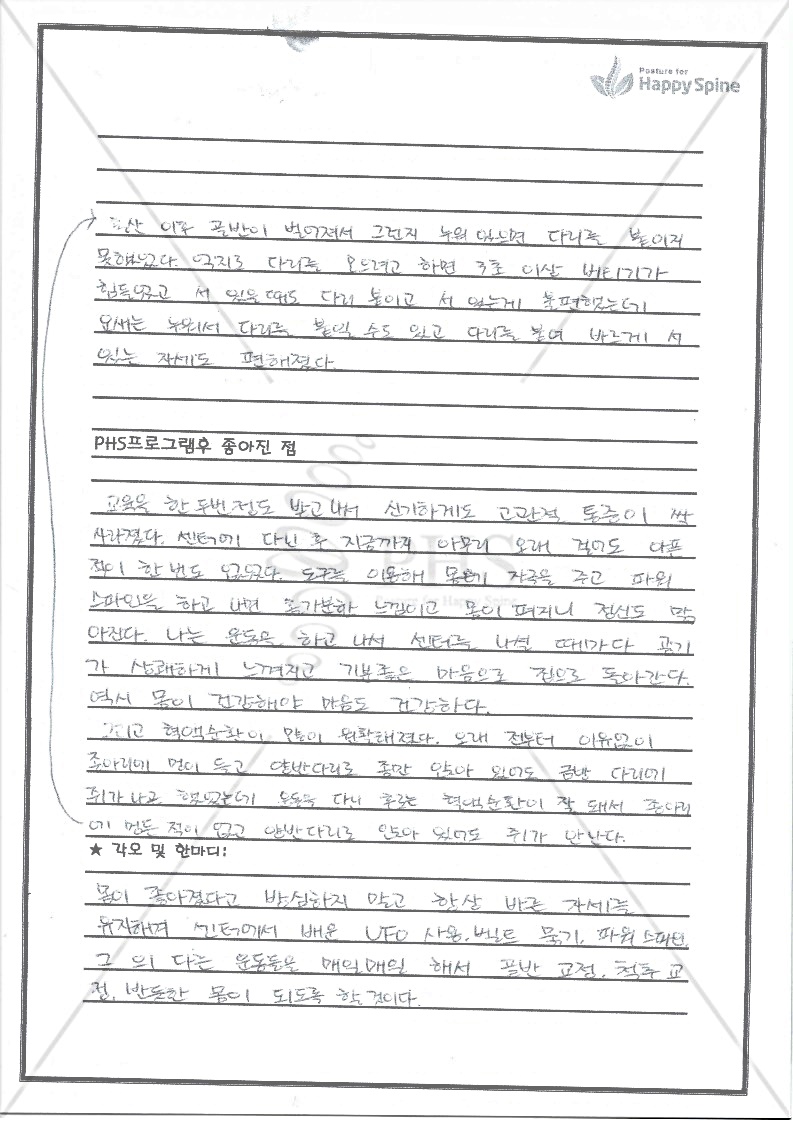 Posture for
Happy Spine
출산 이후 골반이 벌어져서 그런지 누워 있으면 다리를 붙이지
못했었다. 억지로 다리를 모으려고 하면 3초 이상 버티기가
힘들었고 서 있을 때도 다리 붙이고 서 있는게 불편했는데
요새는 누워서 다리를 붙일 수도 있고 다리를 붙여 바르게 서
있는 자세도 편해졌다.
PHS프로그램후 좋아진 점
교육을 한 두번정도 받고 나서 신기하게도 고관절 통증이 싹
사라졌다. 센터에 다닌 후 지금까지 아무리 오래 걸어도 아픈
적이 한 번도 없었다. 도구를 이용해 몸에 자극을 주고 파워
스파인을 하고 나면 홀가분한 느낌이고 몸이 펴지니 정신도 맑
아진다. 나는 운동을 하고 나서 센터를 나설 때마다 공기
가 상쾌하게 느껴지고 기분좋은 마음으로 집으로 돌아간다.
역시 몸이 건강해야 마음도 건강하다.
그리고 혈액순환이 많이 원활해졌다. 오래 전부터 이유없이
종아리에 멍이 들고 양반다리로 좀만 앉아 있어도 금방 다리에
쥐가 나고 했었는데 운동을 다닌 후로는 혈액순환이 잘 돼서 종아리
에 멍든 적이 없고 양반다리로 앉아 있어도 쥐가 안 난다.
★ 각오 및 한마디:
몸이 좋아졌다고 방심하지 말고 항상 바른 자세를
유지하며 센터에서 배운 UFO 사용, 벨트 묶기, 파워 스파인,
그 외 다른 운동들을 매일매일 해서 골반 교정, 척추 교
정, 반듯한 몸이 되도록 할 것이다.
PHS
Posture for Happy Spine